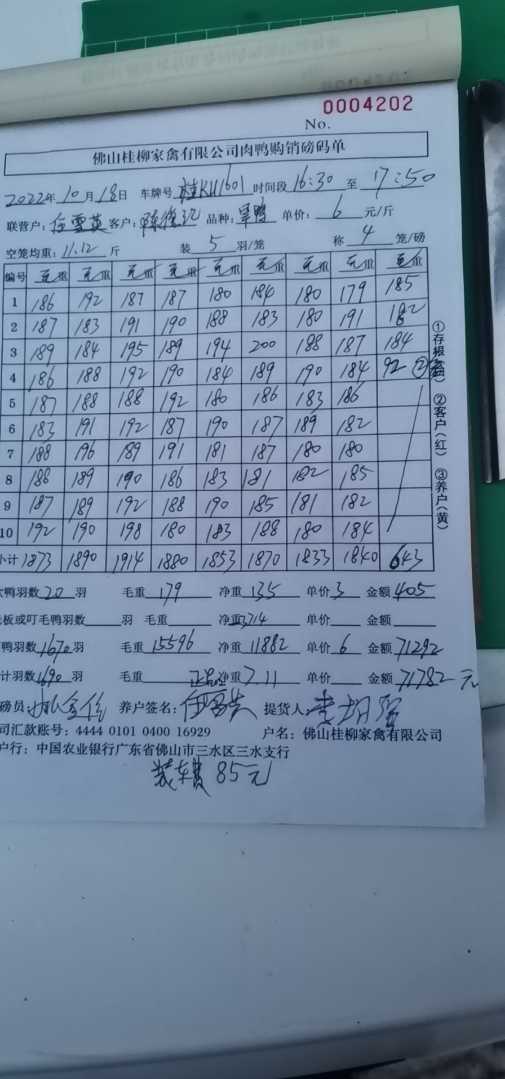 0004202
No.
佛山桂柳家禽有限公司肉鸭购销磅码单
2022年10月18日 车牌号 桂KU1601 时间段 16:30 至 17:50
联营户: 任雪英 客户: 品种: 单价: 6 元/斤
空笼均重: 11.12 斤 装 5 羽/笼 称 4 笼/磅
编号 毛重 毛重 毛重 毛重 毛重 毛重 毛重 毛重 毛重
1 186 192 187 187 180 184 180 179 185
2 187 183 191 190 188 183 180 191 182
3 189 184 195 189 194 200 188 187 184
4 186 188 192 190 184 189 190 184 92
5 187 188 188 192 180 186 183 186
6 183 191 192 187 190 187 189 182
7 188 196 189 191 181 187 180 180
8 188 189 190 186 183 181 182 185
9 187 189 192 188 190 185 181 182
10 192 190 198 180 183 188 180 184
小计 1873 1890 1914 1880 1853 1870 1833 1840 643
①存根 ②客户(红) ③养户(黄)
鸭羽数 20 羽 毛重 179 净重 135 单价 3 金额 405
板或叮毛鸭羽数 羽 毛重 净重 3714 单价 金额
鸭羽数 1670 羽 毛重 15596 净重 11882 单价 6 金额 71292
计羽数 1690 羽 毛重 正品 净重 7.11 单价 金额 71782 元
磅员: 养户签名: 任雪英 提货人:
司汇款账号: 4444 0101 0400 16929 户名: 佛山桂柳家禽有限公司
户行: 中国农业银行广东省佛山市三水区三水支行
装车费 85元